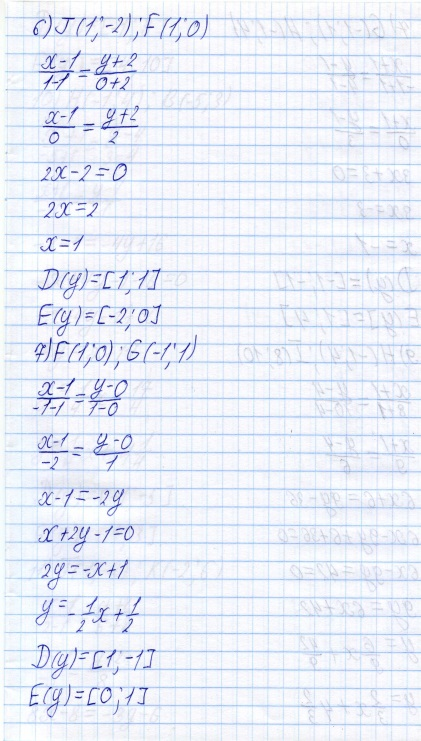 6) J(1; -2); F(1; 0)
x-1/1-1 = y+2/0+2
x-1/0 = y+2/2
2x-2=0
2x=2
x=1
D(y)=[1; 1]
E(y)=[-2; 0]
7) F(1; 0); G(-1; 1)
x-1/-1-1 = y-0/1-0
x-1/-2 = y-0/1
x-1=-2y
x+2y-1=0
2y=-x+1
y=-1/2x+1/2
D(y)=[1; -1]
E(y)=[0; 1]